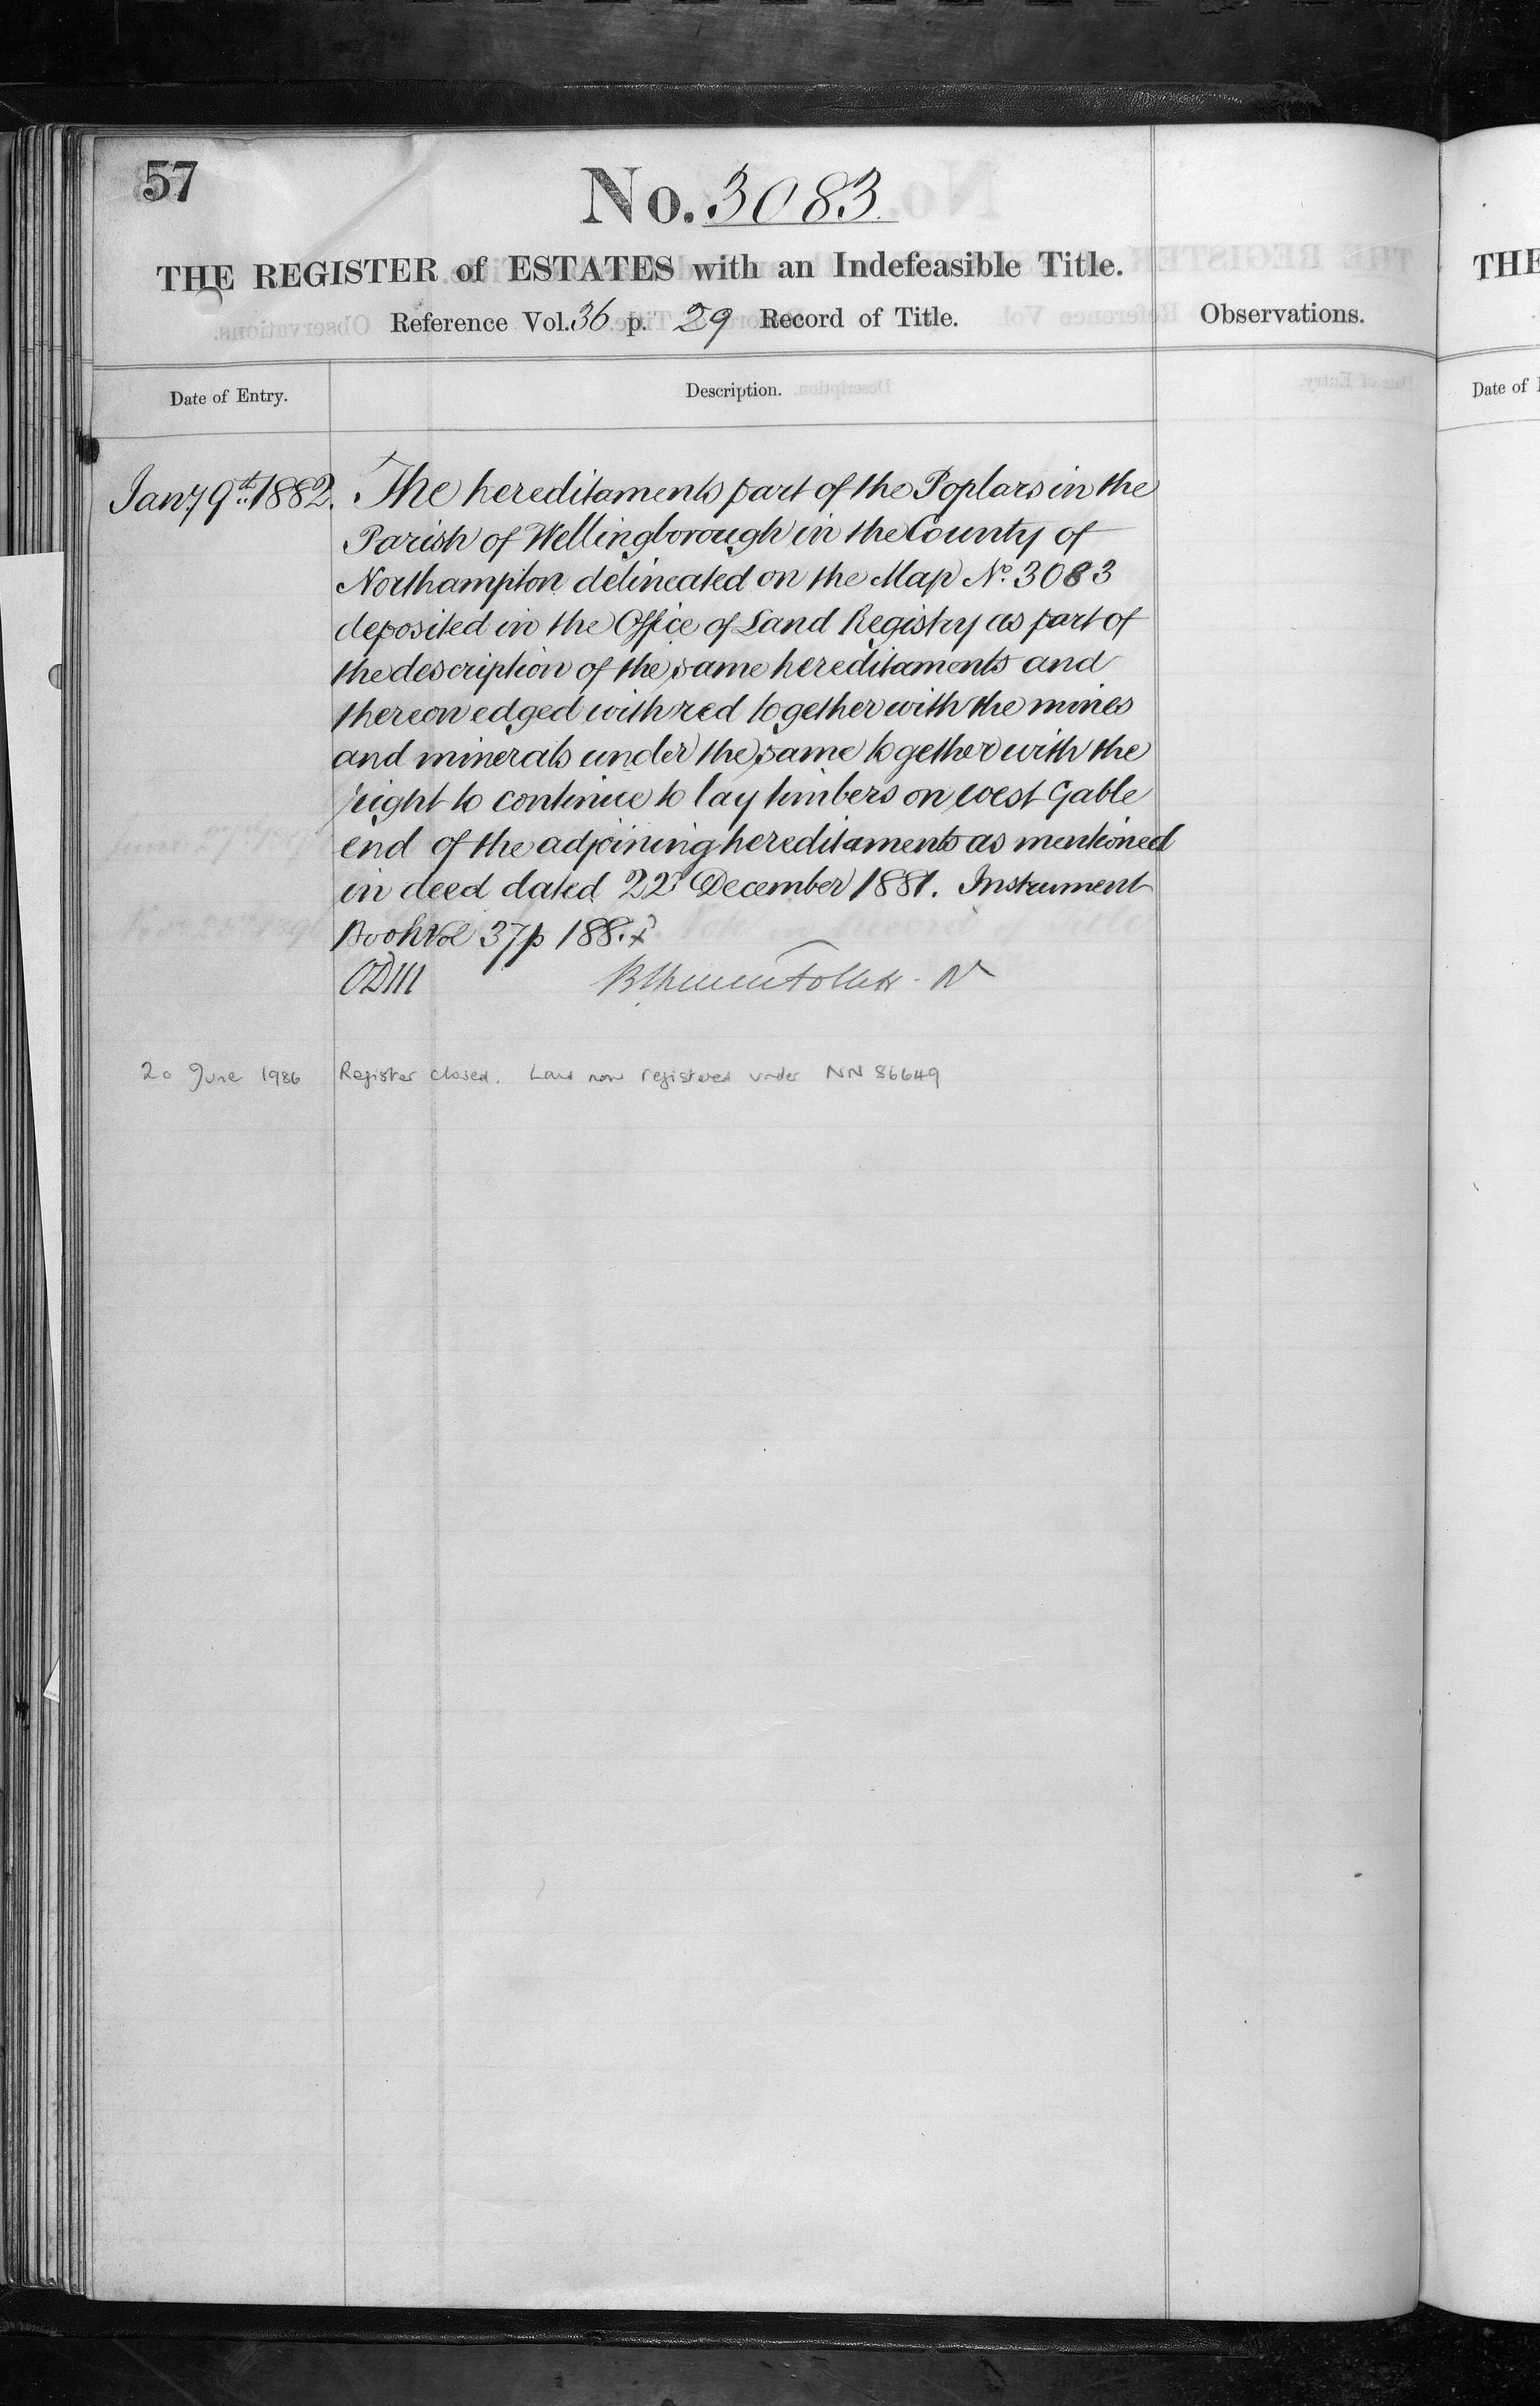 57
No. 3083
THE REGISTER of ESTATES with an Indefeasible Title.
Reference Vol. 36 p. 29 Record of Title.
Observations.
Date of Entry.
Description.
Jany 9th 1882. The hereditaments part of the Poplars in the
Parish of Wellingborough in the County of
Northampton delineated on the Map No. 3083
deposited in the Office of Land Registry as part of
the description of the same hereditaments and
thereon edged with red together with the mines
and minerals under the same together with the
right to continue to lay timbers on west Gable
end of the adjoining hereditaments as mentioned
in deed dated 22d December 1881. Instrument
Book Vol 37 p 188.
20 June 1986 Register closed. Land now registered under NN 86649
THE
Date of